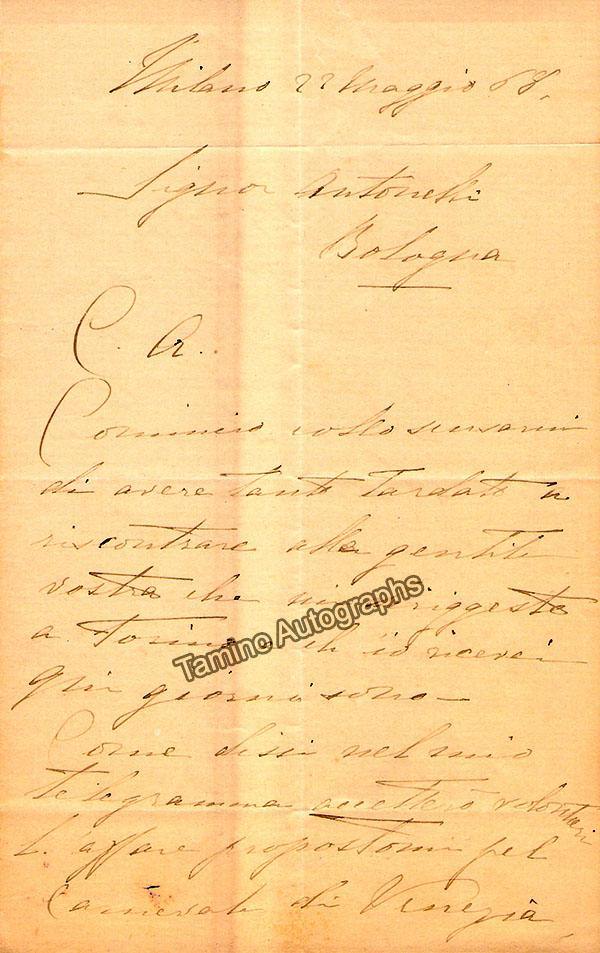 Milano 22 Maggio 68.
Signor Antonelli
Bologna
C. A.
Comincio collo scusarmi
di avere tanto tardato a
riscontrare alla gentile
vostra che mi diriggeste
a Torino e ch'io ricevei
qui giorni sono—
Come dissi nel mio
telegramma accetterò volontieri
l'affare propostomi pel
Carnevale di Venezia
Tamino Autographs